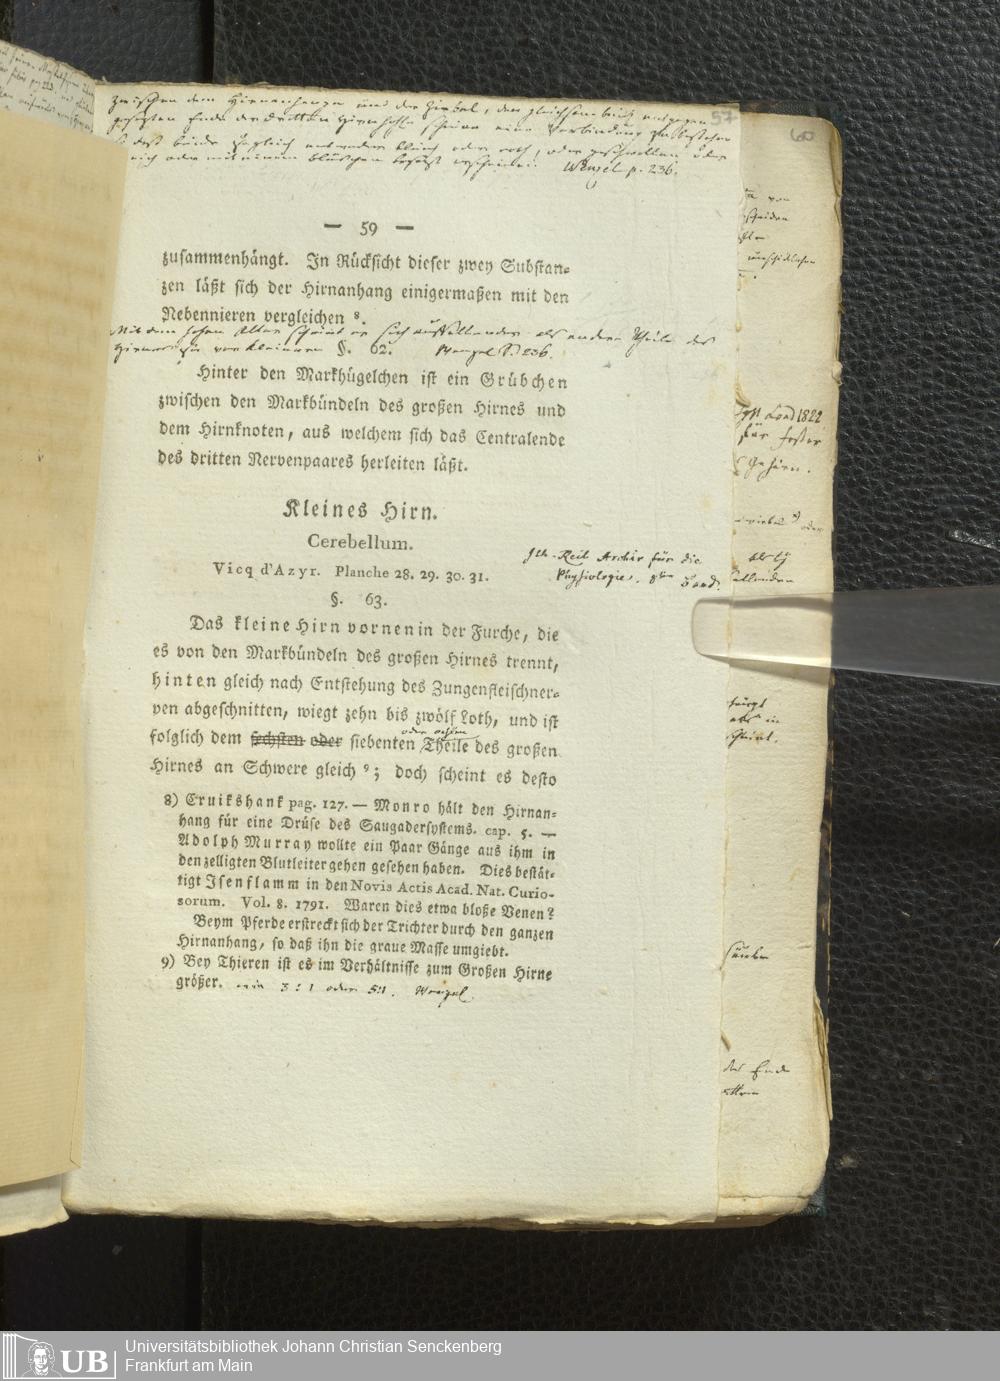 zwischen dem Hirnanhange und der Zirbel, dem gleichsam entgegen
gesetzten Ende der dritten Hirnhöhle scheint eine Verbindung zu bestehen
daß beide zugleich entweder bleich oder roth, oder geschwollen oder
Wenzel p. 236.
57
60
— 59 —
zusammenhängt. In Rücksicht dieser zwey Substan-
zen läßt sich der Hirnanhang einigermaßen mit den
Nebennieren vergleichen 8.
Mit dem hohen Alter scheint er sich auffallender als andere Theile des
zu verkleinern Wenzel S. 236.
§. 62.
Hinter den Markhügelchen ist ein Grübchen
zwischen den Markbündeln des großen Hirnes und
dem Hirnknoten, aus welchem sich das Centralende
des dritten Nervenpaares herleiten läßt.
Kleines Hirn.
Cerebellum.
Vicq d'Azyr. Planche 28. 29. 30. 31.
Reil Archiv für die
Physiologie. 8ter Band.
§. 63.
Das kleine Hirn vornen in der Furche, die
es von den Markbündeln des großen Hirnes trennt,
hinten gleich nach Entstehung des Zungenfleischner-
ven abgeschnitten, wiegt zehn bis zwölf Loth, und ist
oder achten
folglich dem sechsten oder siebenten Theile des großen
Hirnes an Schwere gleich 9; doch scheint es desto
8) Cruikshank pag. 127. — Monro hält den Hirnan-
hang für eine Drüse des Saugadersystems. cap. 5. —
Adolph Murray wollte ein Paar Gänge aus ihm in
den zelligten Blutleiter gehen gesehen haben. Dies bestät-
tigt Isenflamm in den Novis Actis Acad. Nat. Curio-
sorum. Vol. 8. 1791. Waren dies etwa bloße Venen?
Beym Pferde erstreckt sich der Trichter durch den ganzen
Hirnanhang, so daß ihn die graue Masse umgiebt.
9) Bey Thieren ist es im Verhältnisse zum Großen Hirne
größer. wie 3 : 1 oder 5:1. Wenzel.
von
Lond 1822
Gehirn.
oder
der Ende
UB
Universitätsbibliothek Johann Christian Senckenberg
Frankfurt am Main